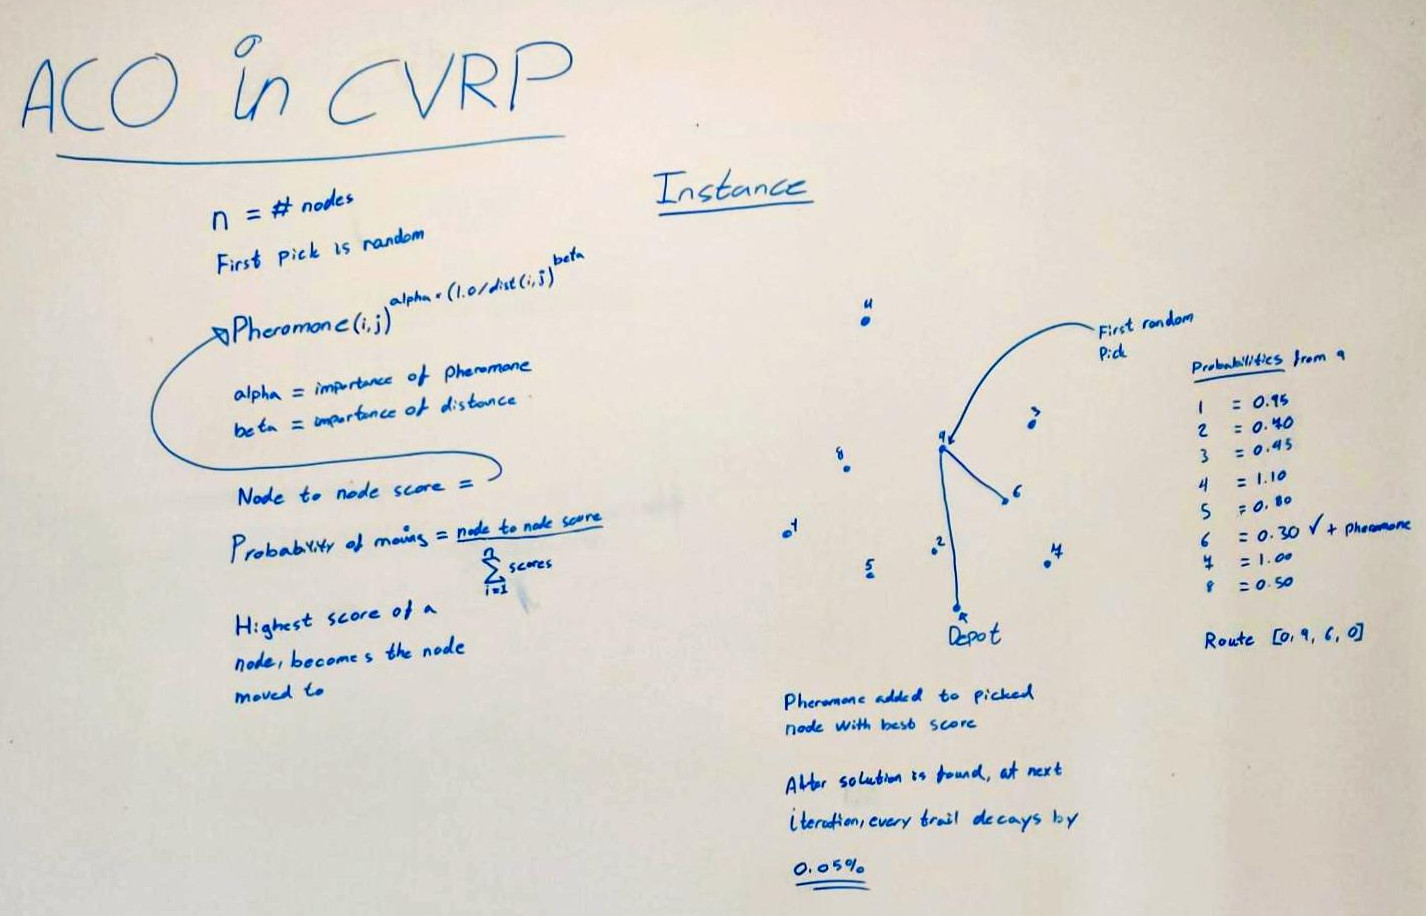 ACO in CVRP
n = # nodes
First pick is random
Pheromone(i,j)^alpha * (1.0/dist(i,j))^beta
alpha = importance of pheromone
beta = importance of distance
Node to node score =
Probability of moving = node to node score
n
∑ scores
i=1
Highest score of a
node, becomes the node
moved to
Instance
4
First random
Pick
3
9
8
6
1
2
5
7
Depot
Probabilities from 9
1 = 0.95
2 = 0.70
3 = 0.45
4 = 1.10
5 = 0.80
6 = 0.30 ✓ + pheromone
7 = 1.00
8 = 0.50
Route [0, 9, 6, 0]
Pheromone added to picked
node with best score
After solution is found, at next
iteration, every trail decays by
0.05%